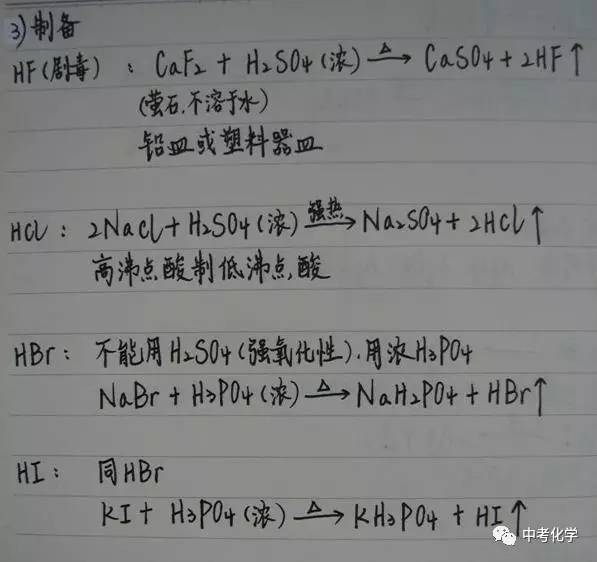 3)制备
HF(剧毒) : CaF₂ + H₂SO₄(浓) —△→ CaSO₄ + 2HF↑
(萤石.不溶于水)
铅皿或塑料器皿
HCl : 2NaCl + H₂SO₄(浓) —强热→ Na₂SO₄ + 2HCl↑
高沸点酸制低沸点酸
HBr : 不能用H₂SO₄(强氧化性).用浓H₃PO₄
NaBr + H₃PO₄(浓) —△→ NaH₂PO₄ + HBr↑
HI : 同HBr
KI + H₃PO₄(浓) —△→ KH₃PO₄ + HI↑
中考化学